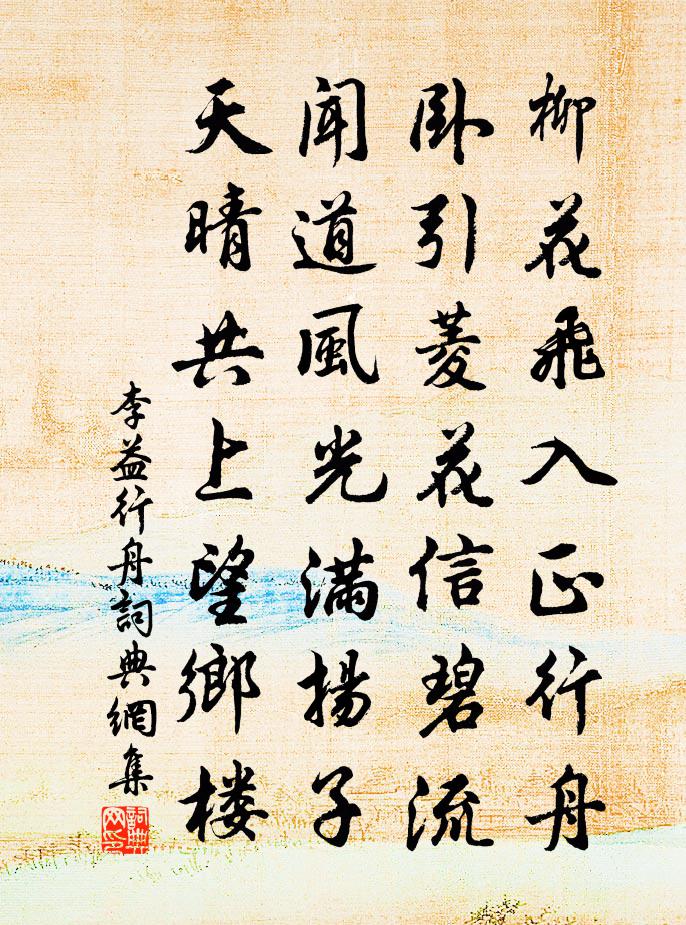 柳花飛入正行舟
卧引菱花信碧流
聞道風光滿揚子
天晴共上望鄉楼
李益行舟詞典網集
詞典网印